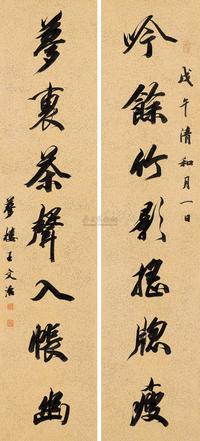 吟餘竹影摇牕瘦
戊午清和月一日
夢裏茶聲入帳幽
夢樓王文治